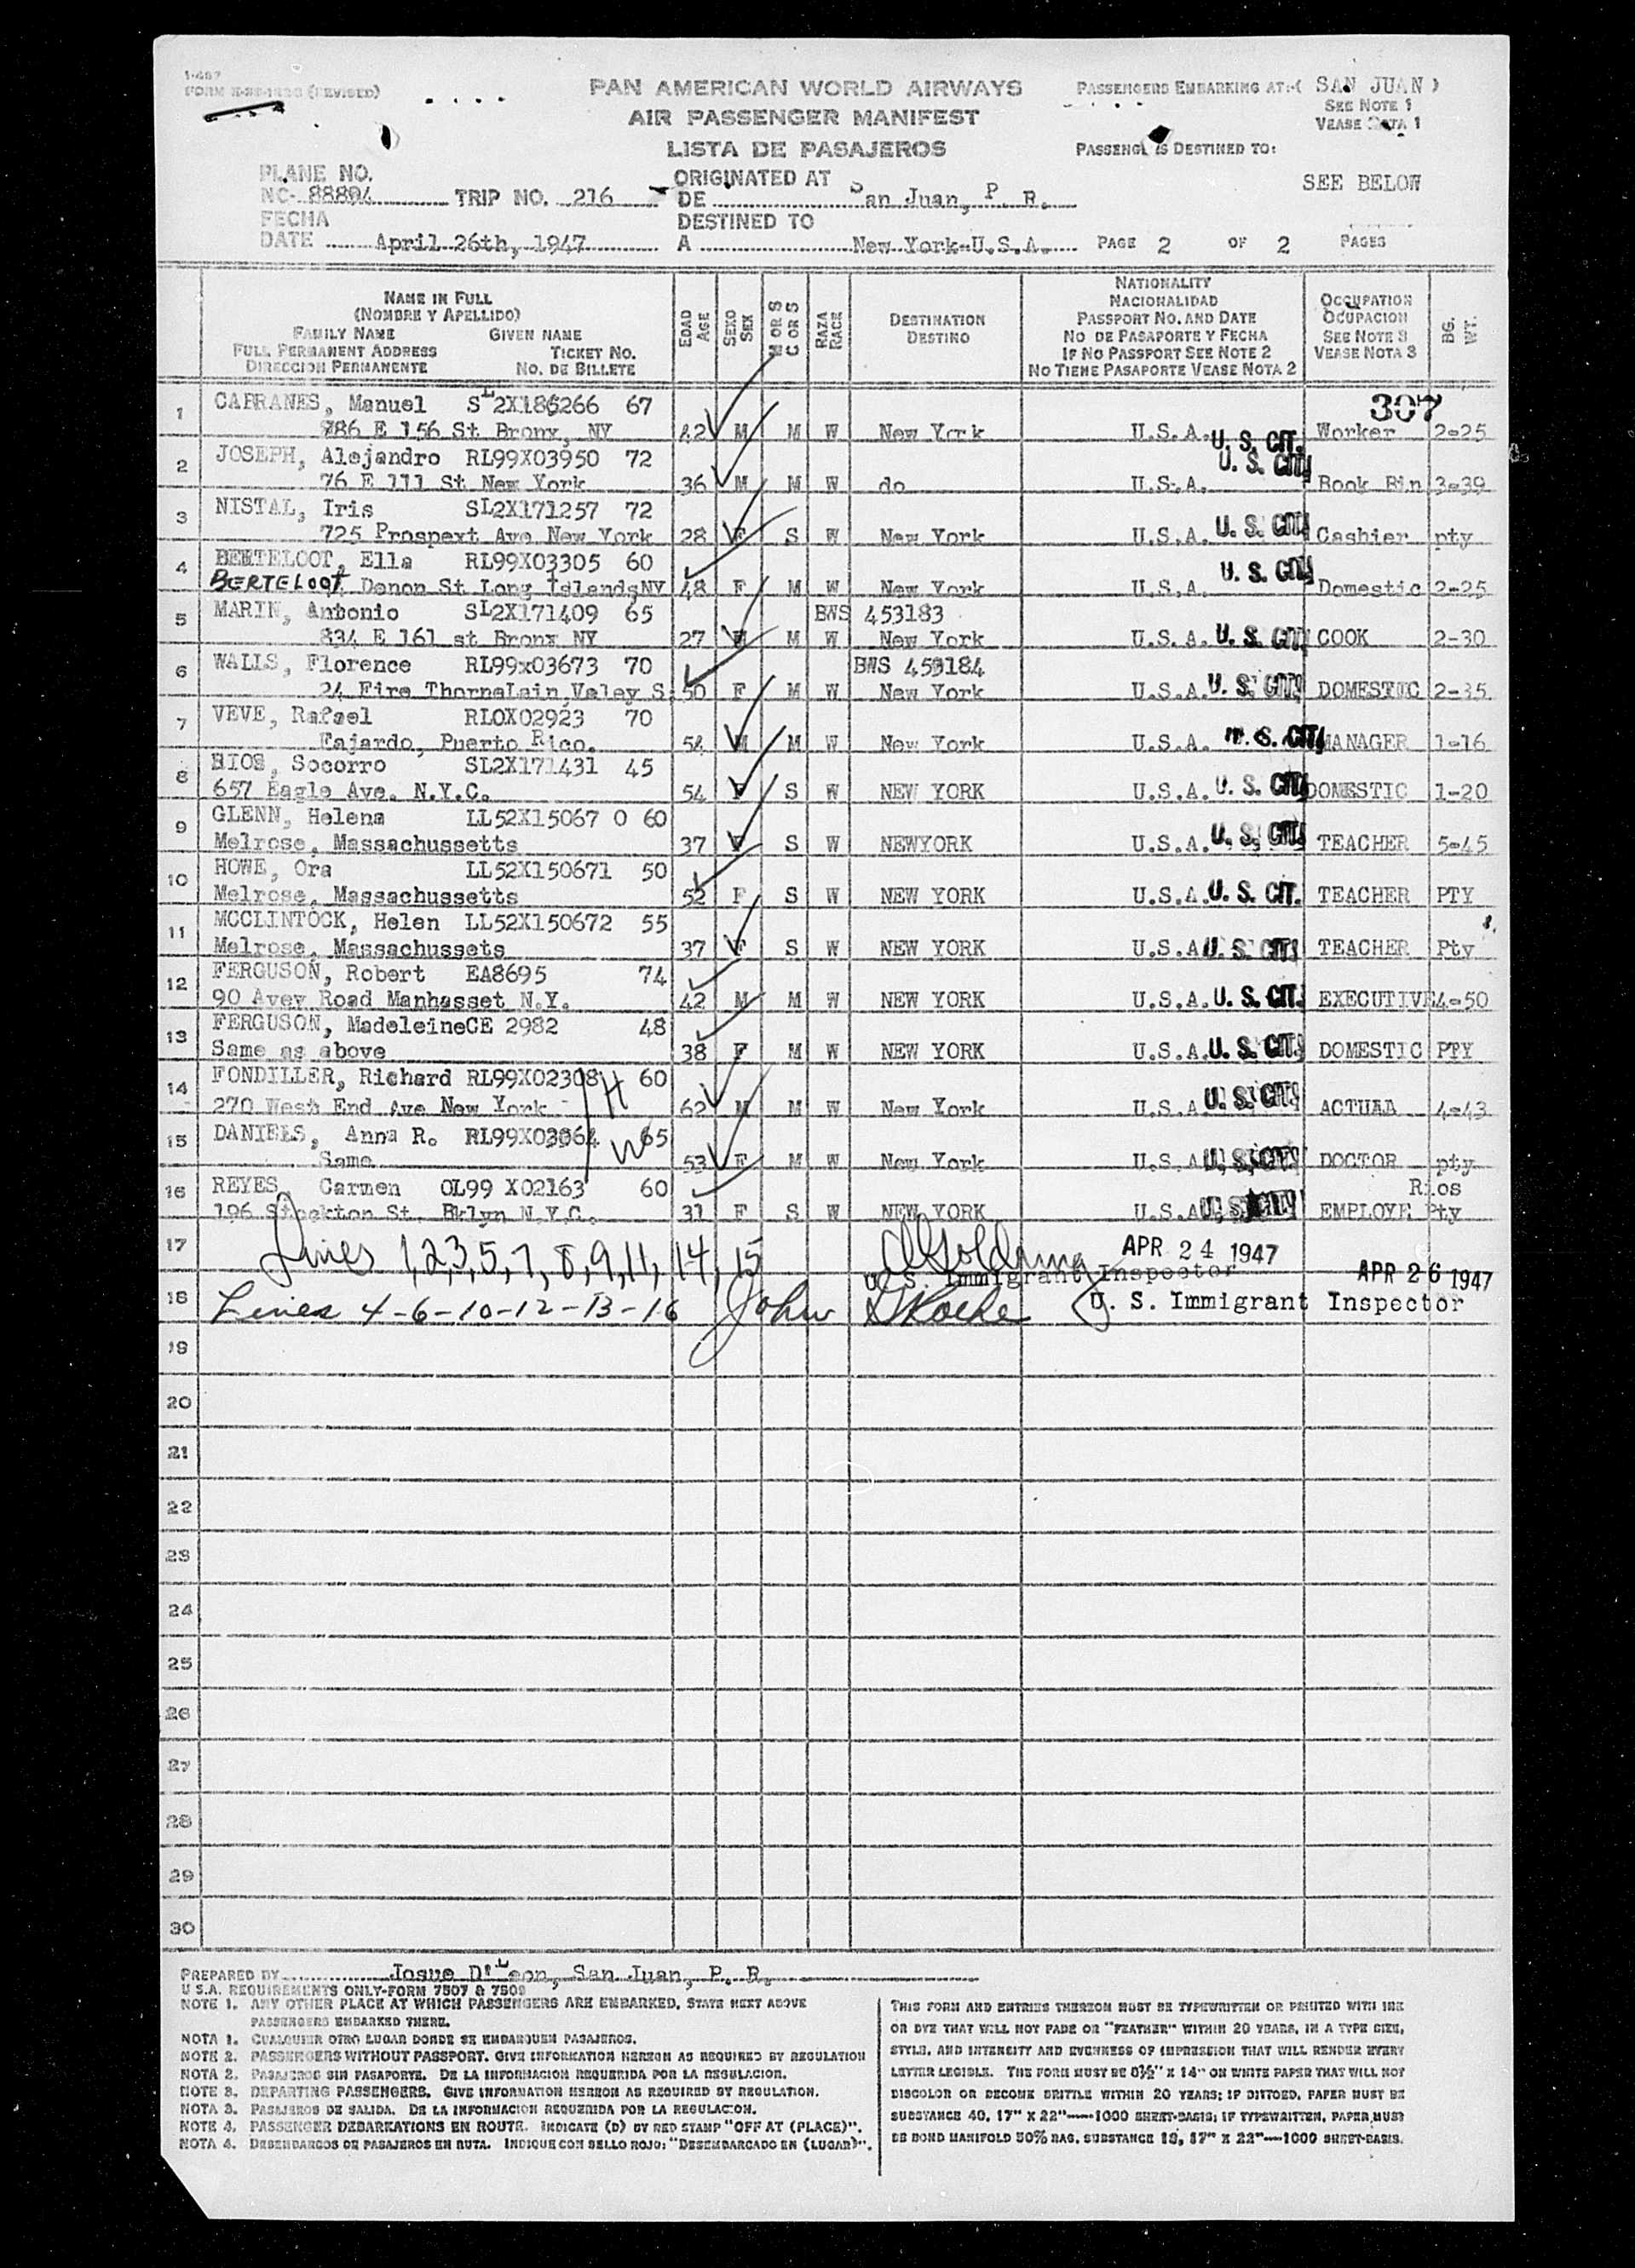 I-467
FORM (REVISED)
PAN AMERICAN WORLD AIRWAYS
AIR PASSENGER MANIFEST
LISTA DE PASAJEROS
PASSENGERS EMBARKING AT:-( SAN JUAN )
SEE NOTE 1
VEASE NOTA 1
PASSENGERS DESTINED TO:
SEE BELOW
PLANE NO.
NC- 88894 TRIP NO. 216
ORIGINATED AT
DE San Juan, P. R.
FECHA
DATE April 26th, 1947
DESTINED TO
A New York-U.S.A. PAGE 2 OF 2 PAGES
NAME IN FULL
(NOMBRE Y APELLIDO)
FAMILY NAME GIVEN NAME
FULL PERMANENT ADDRESS TICKET NO.
DIRECCION PERMANENTE NO. DE BILLETE
EDAD AGE
SEXO SEX
M OR S C OR S
RAZA RACE
DESTINATION
DESTINO
NATIONALITY
NACIONALIDAD
PASSPORT NO. AND DATE
NO DE PASAPORTE Y FECHA
IF NO PASSPORT SEE NOTE 2
NO TIENE PASAPORTE VEASE NOTA 2
OCCUPATION
OCUPACION
SEE NOTE 3
VEASE NOTA 3
BG. WT.
307
1 CABRANES, Manuel SL2X186266 67
786 E 156 St Bronx, NY 42 M M W New York U.S.A. U. S. CIT. Worker 2-25
2 JOSEPH, Alejandro RL99X03950 72
76 E 111 St New York 36 M M W do U.S.A. U. S. CIT. Book Bin 3-39
3 NISTAL, Iris SL2X171257 72
725 Prospext Ave New York 28 F S W New York U.S.A. U. S. CIT. Cashier pty
4 BERTELOOT, Ella RL99X03305 60
BERTELOOT Denon St Long Islands NY 48 F M W New York U.S.A. U. S. CIT. Domestic 2-25
5 MARIN, Antonio SL2X171409 65 BWS 453183
834 E 161 st Bronx NY 27 M M W New York U.S.A. U. S. CIT. COOK 2-30
6 WALLS, Florence RL99x03673 70 BWS 453184
24 Fire ThorneLain Valey S. 50 F M W New York U.S.A. U. S. CIT. DOMESTIC 2-35
7 VEVE, Rafael RLOX02923 70
Fajardo, Puerto Rico. 54 M M W New York U.S.A. U. S. CIT. MANAGER 1-16
8 RIOS, Socorro SL2X171431 45
657 Eagle Ave. N.Y.C. 54 F S W NEW YORK U.S.A. U. S. CIT. DOMESTIC 1-20
9 GLENN, Helena LL52X15067 0 60
Melrose, Massachussetts 37 F S W NEWYORK U.S.A. U. S. CIT. TEACHER 5-45
10 HOWE, Ora LL52X150671 50
Melrose, Massachussetts 52 F S W NEW YORK U.S.A. U. S. CIT. TEACHER PTY
11 MCCLINTOCK, Helen LL52X150672 55
Melrose, Massachussets 37 F S W NEW YORK U.S.A U. S. CIT. TEACHER Pty
12 FERGUSON, Robert EA8695 74
90 Avey Road Manhasset N.Y. 42 M M W NEW YORK U.S.A. U. S. CIT. EXECUTIVE 4-50
13 FERGUSON, MadeleineCE 2982 48
Same as above 38 F M W NEW YORK U.S.A U. S. CIT. DOMESTIC PTY
14 FONDILLER, Richard RL99X02308 H 60
270 West End Ave New York 62 M M W New York U.S.A U. S. CIT. ACTUAA 4-43
15 DANIELS, Anna R. RL99X03064 W 65
Same 53 F M W New York U.S.A U. S. CIT. DOCTOR pty
16 REYES, Carmen OL99 X02163 60 Rios
196 Stockton St. Bklyn N.Y.C. 31 F S W NEW YORK U.S.A U. S. CIT. EMPLOYE Pty
17 Lines 1,2,3,5,7,8,9,11,14,15 APR 24 1947
U. S. Immigrant Inspector APR 26 1947
18 Lines 4-6-10-12-13-16 John Roche U. S. Immigrant Inspector
19
20
21
22
23
24
25
26
27
28
29
30
PREPARED BY Josue D'Leon, San Juan, P. R.
U S.A. REQUIREMENTS ONLY-FORM 7507 & 7509
NOTE 1. ANY OTHER PLACE AT WHICH PASSENGERS ARE EMBARKED, STATE NEXT ABOVE
PASSENGERS EMBARKED THERE.
NOTA 1. CUALQUIER OTRO LUGAR DONDE SE EMBARQUEN PASAJEROS.
NOTE 2. PASSENGERS WITHOUT PASSPORT. GIVE INFORMATION HEREON AS REQUIRED BY REGULATION
NOTA 2. PASAJEROS SIN PASAPORTE. DE LA INFORMACION REQUERIDA POR LA REGULACION.
NOTE 3. DEPARTING PASSENGERS. GIVE INFORMATION HEREON AS REQUIRED BY REGULATION.
NOTA 3. PASAJEROS DE SALIDA. DE LA INFORMACION REQUERIDA POR LA REGULACION.
NOTE 4. PASSENGER DEBARKATIONS EN ROUTE. INDICATE (D) BY RED STAMP "OFF AT (PLACE)".
NOTA 4. DESEMBARCOS DE PASAJEROS EN RUTA. INDIQUE CON SELLO ROJO: "DESEMBARCADO EN (LUGAR)".
THIS FORM AND ENTRIES THEREON MUST BE TYPEWRITTEN OR PRINTED WITH INK
OR DYE THAT WILL NOT FADE OR "FEATHER" WITHIN 20 YEARS, IN A TYPE SIZE,
STYLE, AND INTENSITY AND EVENNESS OF IMPRESSION THAT WILL RENDER EVERY
LETTER LEGIBLE. THE FORM MUST BE 8½" X 14" ON WHITE PAPER THAT WILL NOT
DISCOLOR OR BECOME BRITTLE WITHIN 20 YEARS; IF DITTOED, PAPER MUST BE
SUBSTANCE 40, 17" X 22"—1000 SHEET-BASIS; IF TYPEWRITTEN, PAPER MUST
BE BOND MANIFOLD 50% RAG, SUBSTANCE 18, 17" X 22"—1000 SHEET-BASIS.